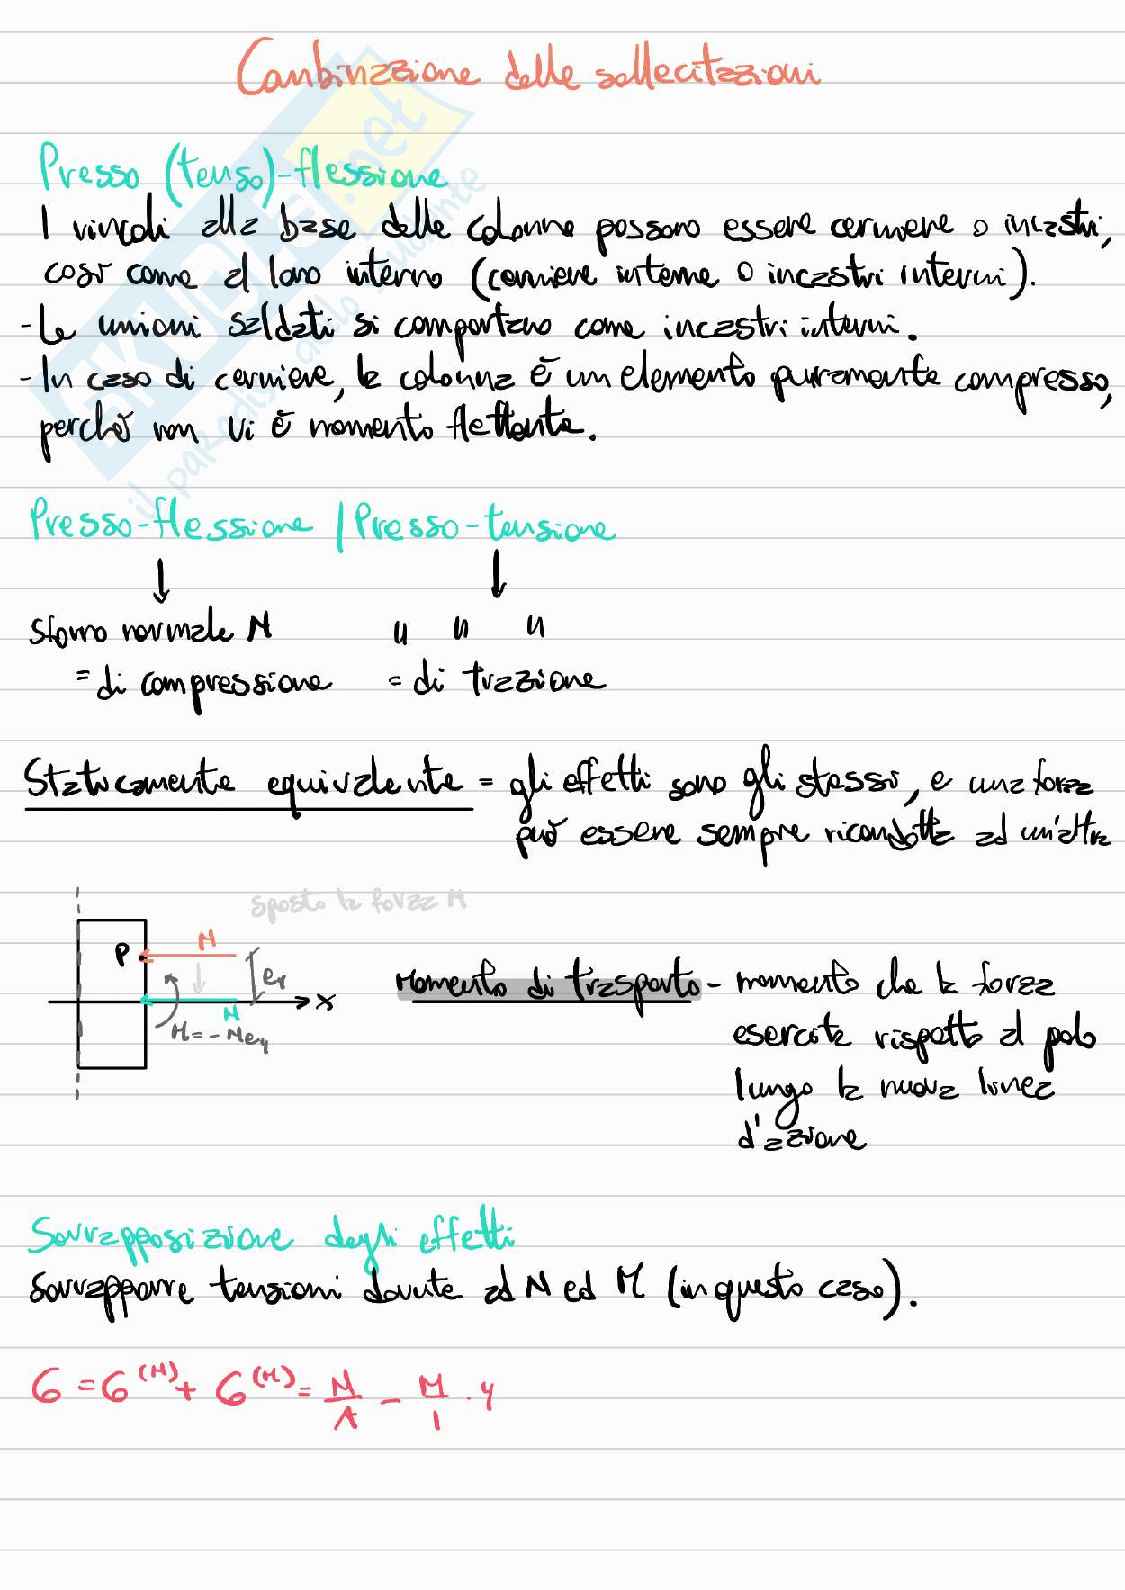 Combinazione delle sollecitazioni
Presso (tenso)-flessione
I vincoli alla base delle colonne possono essere cerniere o incastri,
così come al loro interno (cerniere interne o incastri interni).
-Le unioni saldati si comportano come incastri interni.
-In caso di cerniere, la colonna è un elemento puramente compresso,
perchè non vi è momento flettente.
Presso-flessione | Presso-tensione
↓ ↓
Sforzo normale N " " "
= di compressione = di trazione
Staticamente equivalente = gli effetti sono gli stessi, e una forza
può essere sempre ricondotta ad un'altra
sposto la forza N
P N
ey
x
N
M=-Ney
Momento di trasporto - momento che la forza
esercita rispetto al polo
lungo la nuova linea
d'azione
Sovrapposizione degli effetti
Sovrapporre tensioni dovute ad N ed M (in questo caso).
σ = σ^(N) + σ^(M) = N/A - M/I · y
SKUOLA.net
il paradiso dello studente